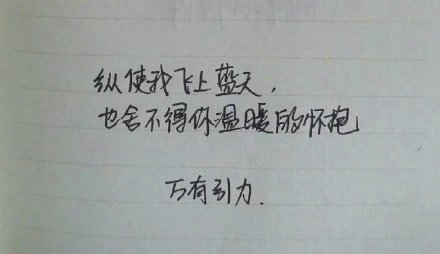 纵使我飞上蓝天，
也舍不得你温暖的怀抱
万有引力.